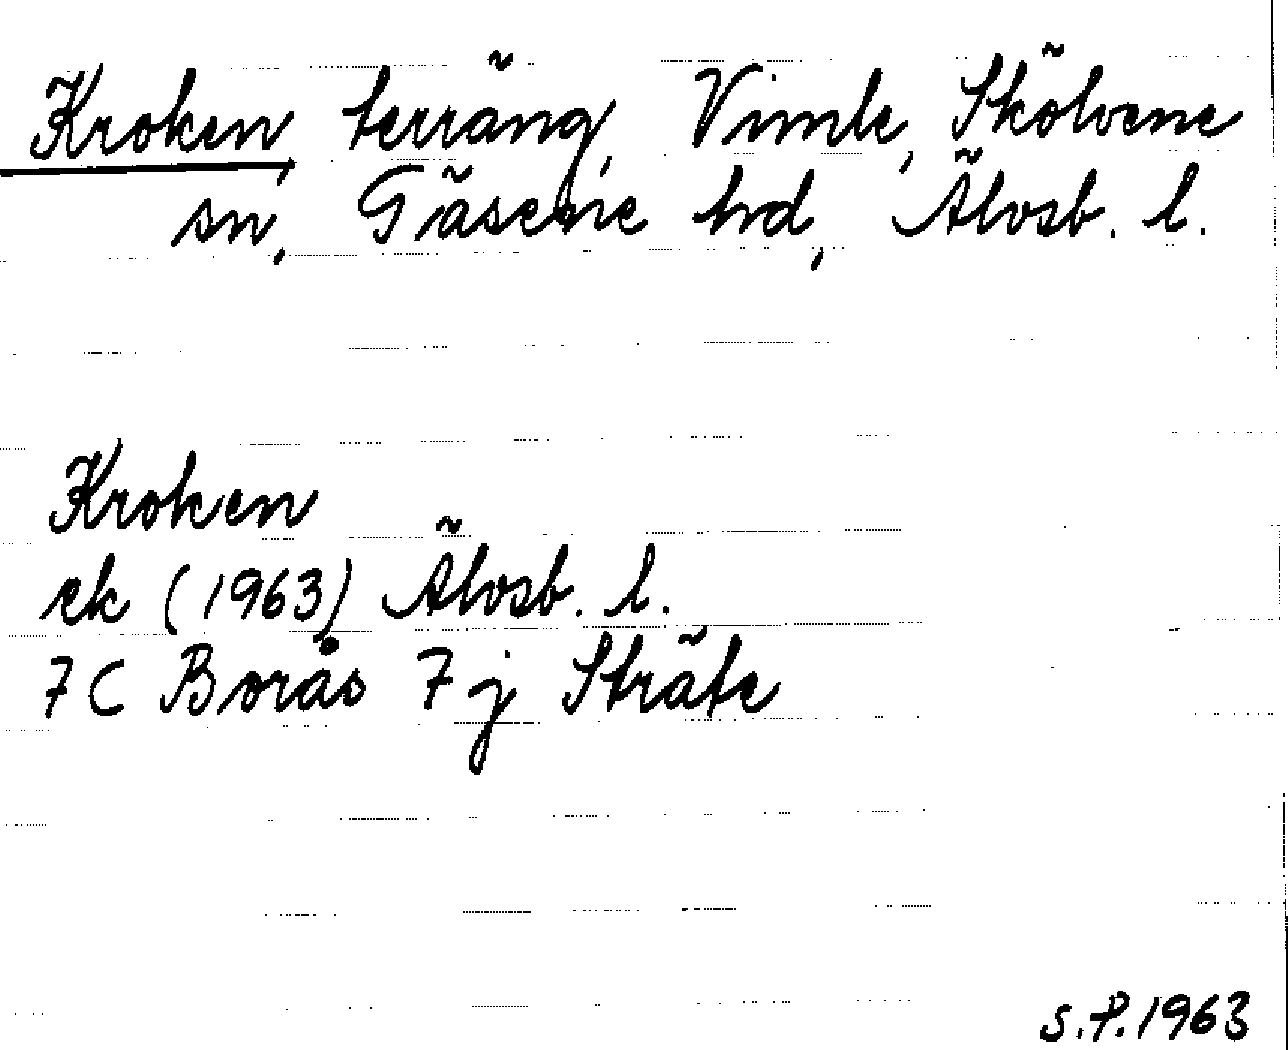 Kroken, terräng, Vimle, Skölvene
sn, Gäsene hd, Älvsb. l.
Kroken
ek (1963) Älvsb. l.
7C Borås 7j Sträte
S.P. 1963